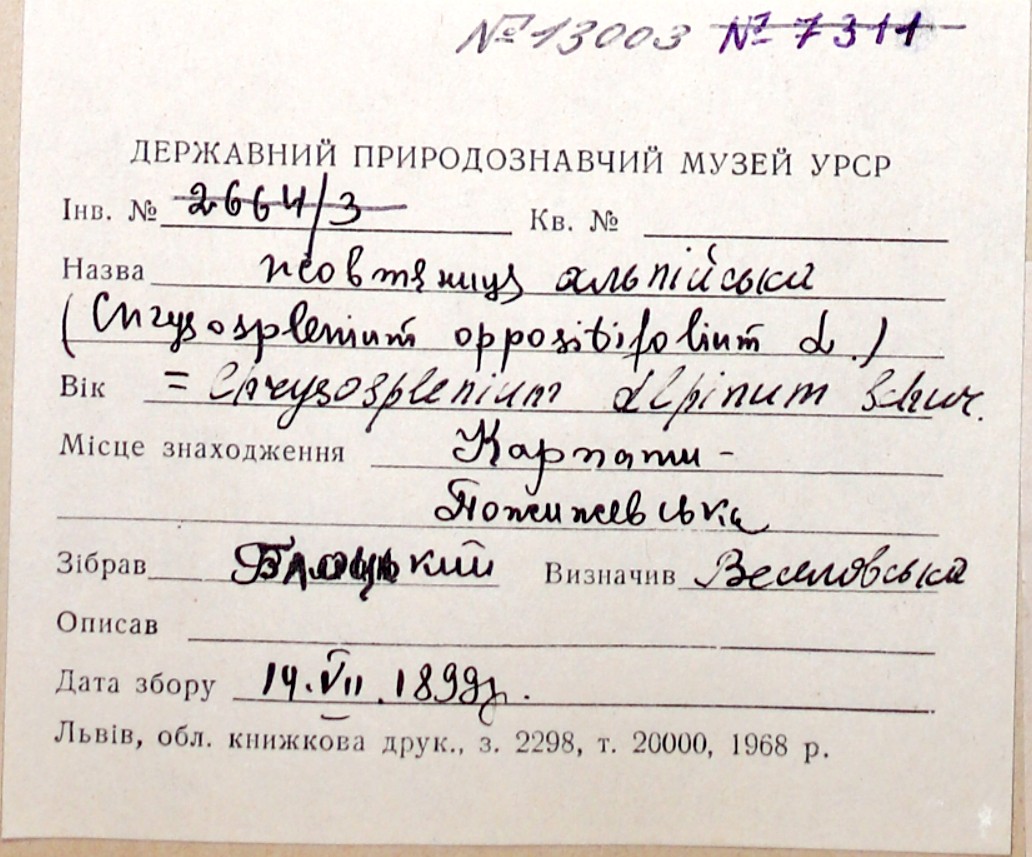 № 13003 № 7311
ДЕРЖАВНИЙ ПРИРОДОЗНАВЧИЙ МУЗЕЙ УРСР
Інв. № 2664/3 Кв. №
Назва жовтяниця альпійська
(Chrysosplenium oppositifolium L.)
Вік = Chrysosplenium alpinum Schur.
Місце знаходження Карпати -
Пожижевська
Зібрав Блоцький Визначив Веселовська
Описав
Дата збору 14.VII.1899р.
Львів, обл. книжкова друк., з. 2298, т. 20000, 1968 р.